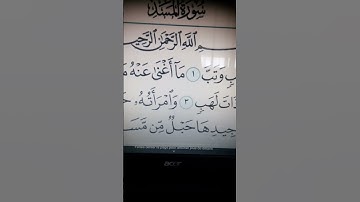 سُورَةُ المَسَدِ
ـمِ ٱللَّهِ ٱلرَّحْمَٰنِ ٱلرَّحِيـ
وَتَبَّ ١ مَآ أَغْنَىٰ عَنْهُ
لَهَبٍ ٣ وَٱمْرَأَتُهُۥ
جِيدِهَا حَبْلٌ مِّن مَّسَـ
acer